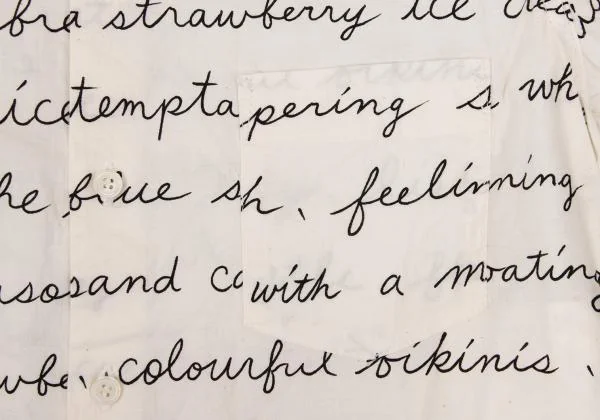 bra strawberry ice crea
ice tempta pering s, wh
he blue sh, feelinning
usosand co with a moating
wbe, colourful oikinis,